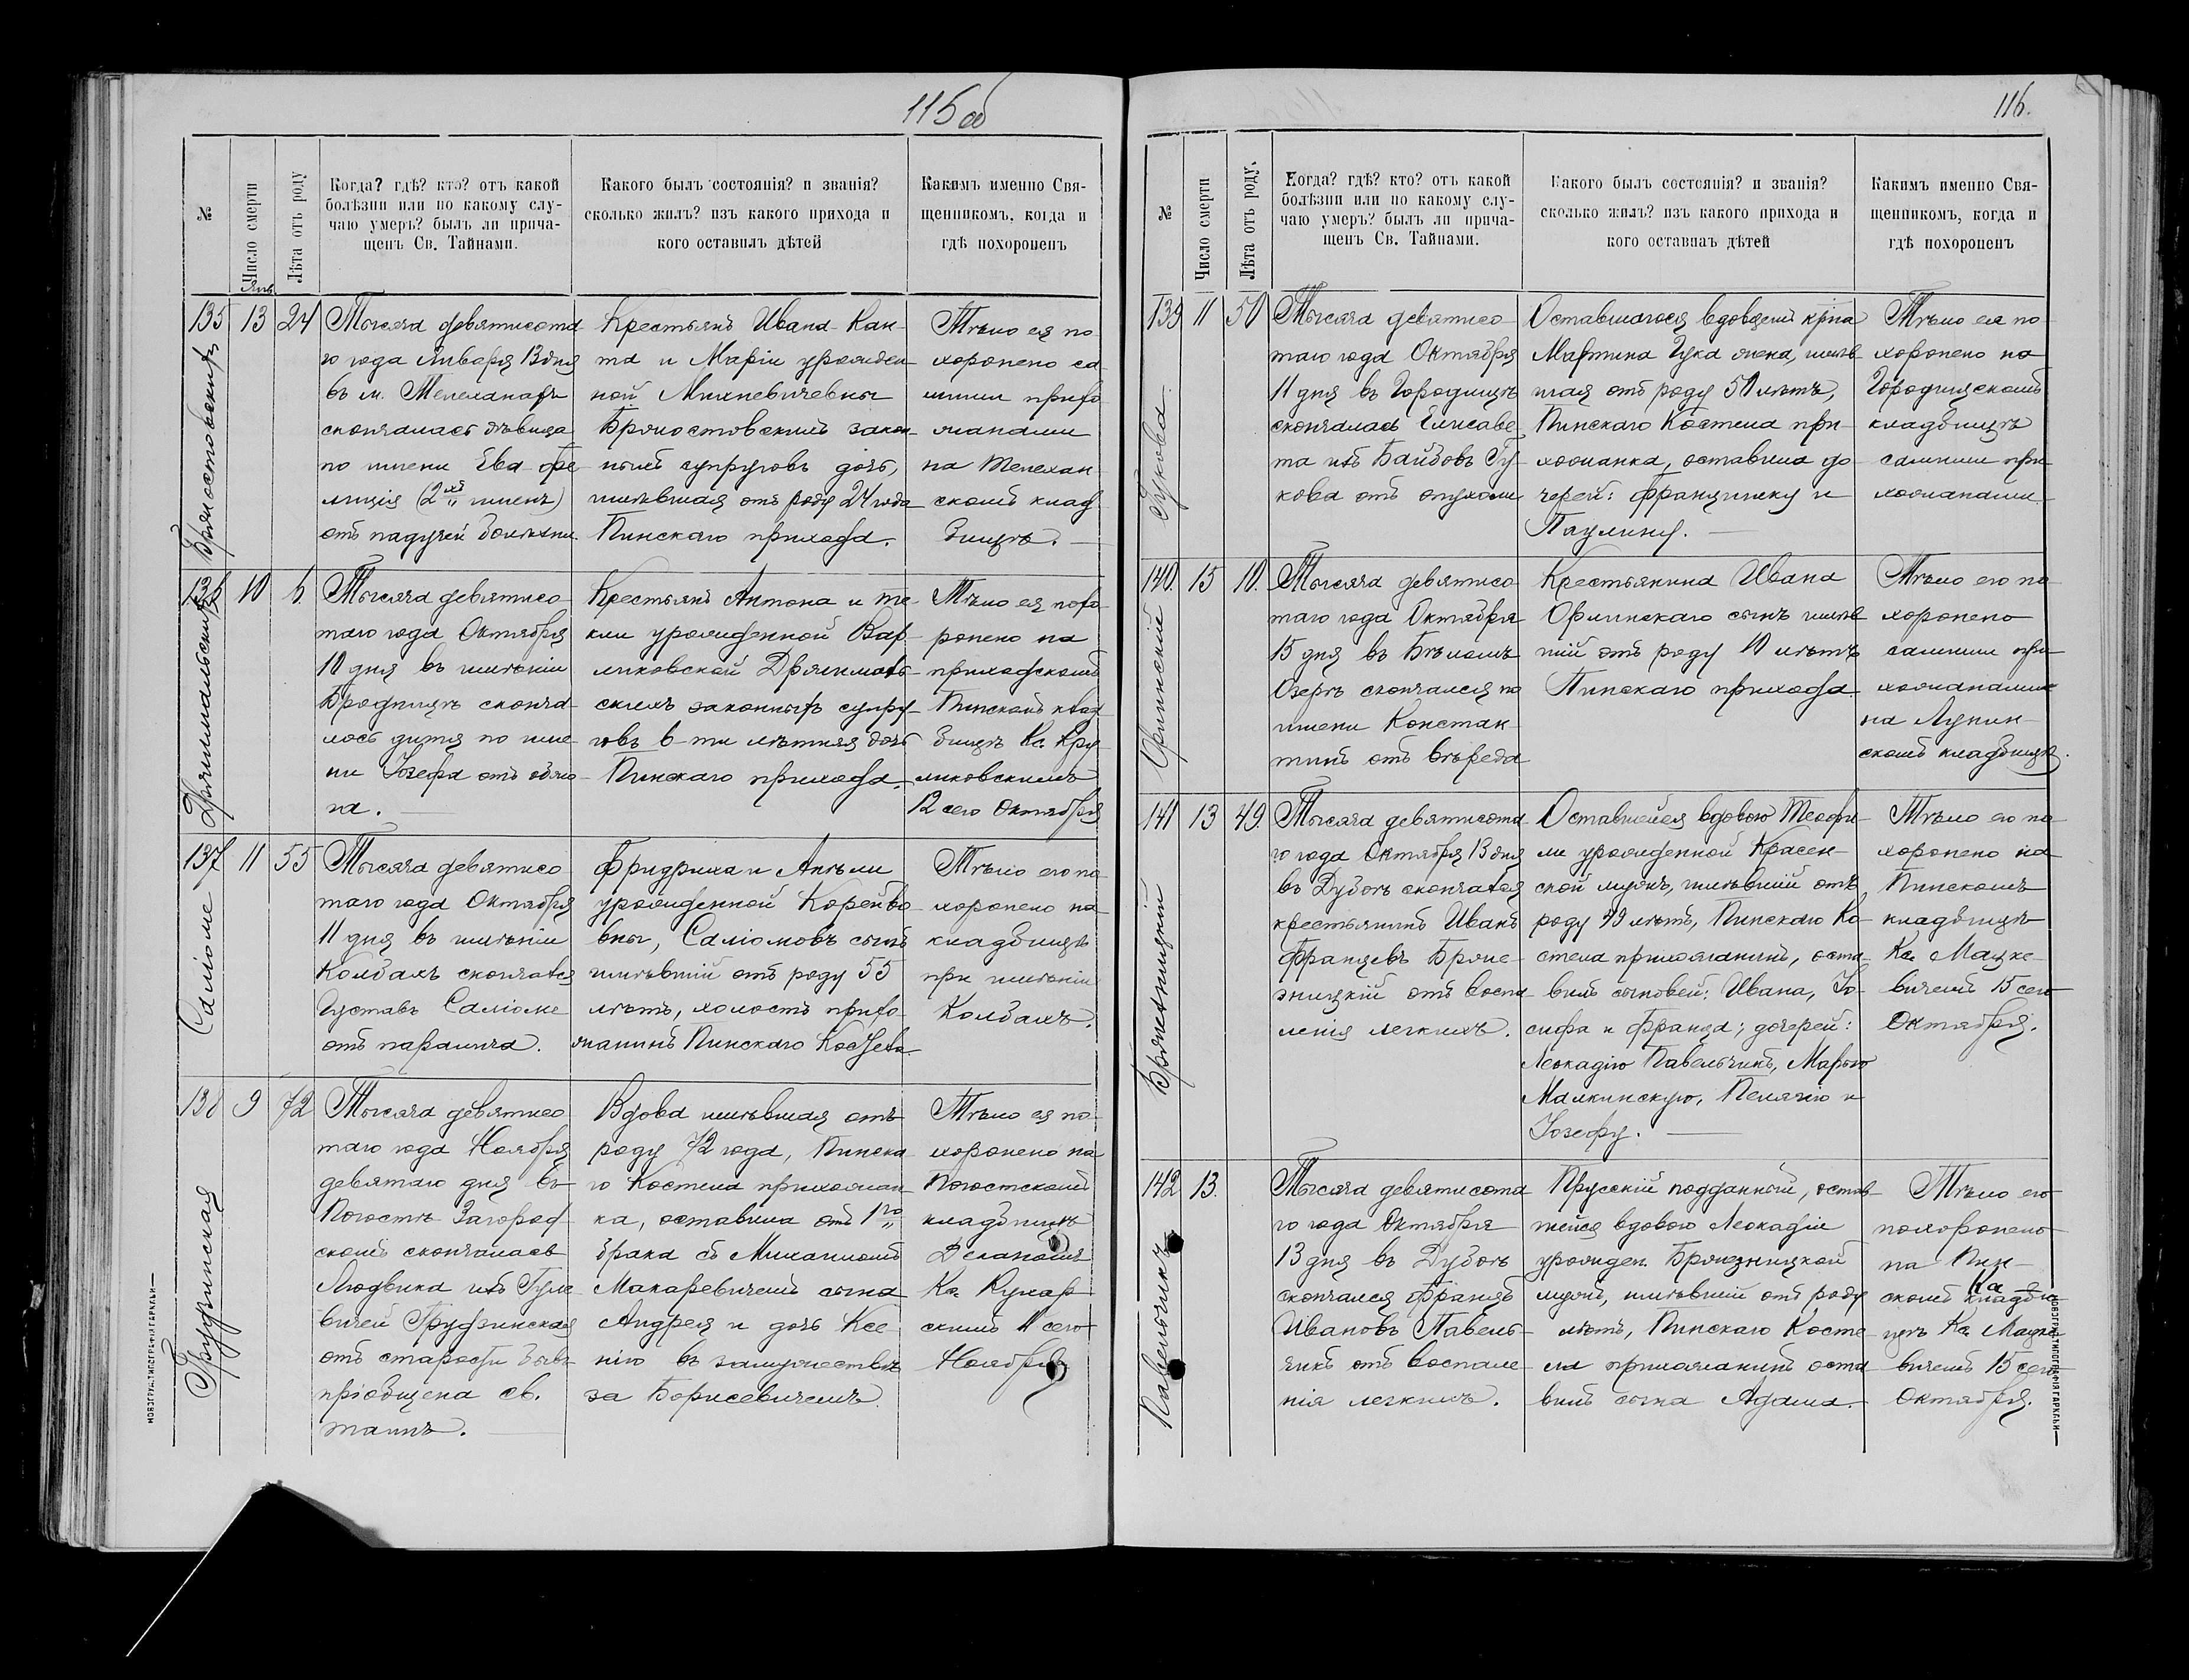 115 об
№
Число смерти
Лѣта отъ роду
Когда? гдѣ? кто? отъ какой
болѣзни или по какому слу-
чаю умеръ? былъ ли прича-
щенъ Св. Тайнами.
Какого былъ состоянія? и званія?
сколько жилъ? изъ какого прихода и
кого оставилъ дѣтей
Какимъ именно Свя-
щенникомъ, когда и
гдѣ похороненъ
135
Янв.
13
24
Тысяча девятисота
го года Января 13 дня
въ м. Телеханахъ
скончалась дѣвица
по имени Ева Фе
лиція (2хъ именъ)
отъ падучей болѣзни
Крестьянъ Ивана Кан-
та и Маріи урожден
ной Михневичевны
законн
ныхъ супруговъ дочь,
имѣвшая отъ роду 24 года
Пинскаго прихода.
Тѣло ея по
хоронено са
мими прихо
жанами
на Телехан
скомъ клад
бищѣ.
136
10
6.
Тысяча девятисо
таго года Октября
10 дня въ имѣніи
Бродницѣ сконча
лось дитя по име
ни Юзефа отъ обжо
га.
Крестьянъ Антона и Те-
кли урожденной Вар
ликовской
скихъ законныхъ супру
говъ 6-ти лѣтняя дочь
Пинскаго прихода.
Тѣло ея похо
ронено на
приходскомъ
Пинскомъ клад
бищѣ Кс. Кру
ликовскимъ
12 сего Октября
137
Саліоме
11
55
Тысяча девятисо
таго года Октября
11 дня въ имѣніи
Колбахъ скончался
Густавъ Саліоме
отъ паралича.
Фридриха и Анѣли
урожденной Корейво
вны, Саліомовъ сынъ
имѣвшій отъ роду 55
лѣтъ, холостъ прихо
жанинъ Пинскаго Костела
Тѣло его по
хоронено на
кладбищѣ
при имѣніи
Колбахъ.
138
Груфинская
9
72
Тысяча девятисо
таго года Ноября
девятаго дня въ
Погостѣ Загород
скомъ скончалась
Людвика изъ Гуле
вичей Груфинская
отъ старости бывъ
пріобщена св.
таинъ.
Вдова имѣвшая отъ
роду 72 года, Пинска
го Костела прихожан
ка, оставила отъ 1го
брака съ Михаиломъ
Макаревичемъ сына
Андрея и дочь Ксе
нію въ замужествѣ
за Борисевичемъ.
Тѣло ея по
хоронено на
Погостскомъ
кладбищѣ
Деканомъ
Кс. Кухар
скимъ 11 сего
Ноября
НОВОГРУД. ТИПОГРАФІЯ ГАРКАВИ
116.
№
Число смерти
Лѣта отъ роду.
Когда? гдѣ? кто? отъ какой
болѣзни или по какому слу-
чаю умеръ? былъ ли прича-
щенъ Св. Тайнами.
Какого былъ состоянія? и званія?
сколько жилъ? изъ какого прихода и
кого оставилъ дѣтей
Какимъ именно Свя-
щенникомъ, когда и
гдѣ похороненъ
139
Гукова
11
50
Тысяча девятисо
таго года Октября
11 дня въ Городищѣ
скончалась Елисаве
та изъ Байбовъ Гу
кова отъ опухоли
Оставшагося вдовцемъ крна
Мартина Гука жена, имѣв
шая отъ роду 50 лѣтъ,
Пинскаго Костела при
хожанка, оставила до
черей: Францишку и
Паулину.
Тѣло ея по
хоронено на
Городищскомъ
кладбищѣ
самими при
хожанами
140.
Орлинскій
15
10.
Тысяча девятисо
таго года Октября
15 дня въ Бѣломъ
Озерѣ скончался по
имени Констан
тинъ отъ вереда
Крестьянина Ивана
Орлинскаго сынъ имѣв
шій отъ роду 10 лѣтъ
Пинскаго прихода.
Тѣло его по
хоронено
самими при
хожанами
на Лунин
скомъ кладбищѣ.
141
13
49.
Тысяча девятисота
го года Октября 13 дня
въ Дубоѣ скончался
крестьянинъ Иванъ
Францевъ Брже
зницкій отъ воспа
ленія легкихъ.
Оставшейся вдовою Теофи
ли урожденной Красен
ской мужъ, имѣвшій отъ
роду 49 лѣтъ, Пинскаго Ко
стела прихожанинъ, оста
вилъ сыновей: Ивана, Іо
сифа и Франца; дочерей:
Леокадію Павельчикъ, Марью
Малкинскую, Пелагію и
Юзефу.
Тѣло его по
хоронено на
Пинскомъ
кладбищѣ
Кс. Мацке
вичемъ 15 сего
Октября.
142
Павельчикъ
13.
Тысяча девятисота
го года Октября
13 дня въ Дубоѣ
скончался Францъ
Ивановъ Павель-
чикъ отъ воспале
нія легкихъ.
Прусскій подданный, остав
шейся вдовою Леокадіи
урожден. Бржезницкой
мужъ, имѣвшій отъ роду
лѣтъ, Пинскаго Косте
ла прихожанинъ оста
вилъ сына Адама.
Тѣло его
похоронено
на Пин-
скомъ кладби
щѣ Кс. Мацке
вичемъ 15 сего
Октября.
НОВОГРУД. ТИПОГРАФІЯ ГАРКАВИ